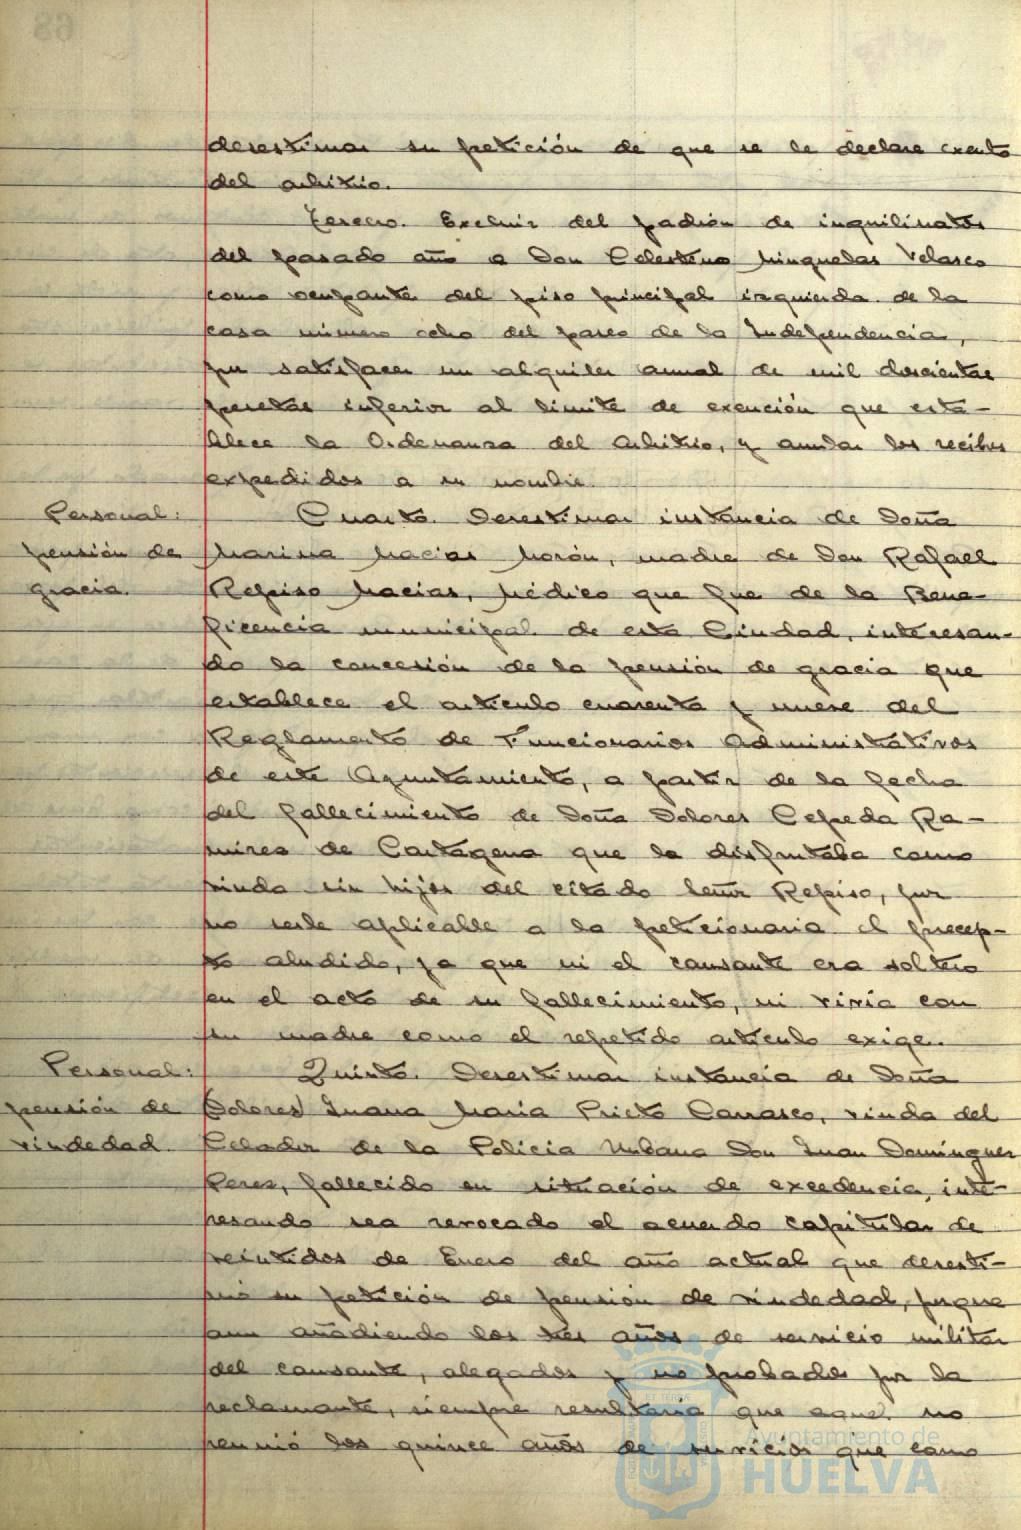 desestimar su petición de que se le declare exento
del arbitrio.
Tercero. Excluir del padrón de inquilinatos
del pasado año a Don Celestino Minguelas Velasco
como ocupante del piso principal izquierda de la
casa número ocho del paseo de la Independencia,
por satisfacer un alquiler annal de mil doscientas
pesetas inferior al límite de exención que esta-
blece la Ordenanza del Arbitrio, y anular los recibos
expedidos a su nombre.
Personal:
pensión de
gracia.
Cuarto. Desestimar instancia de Doña
Marina Macias Morón, madre de Don Rafael
Repiso Macias, Médico que fue de la Bene-
ficencia municipal de esta Ciudad, interesan-
do la concesión de la pensión de gracia que
establece el artículo cuarenta y nueve del
Reglamento de Funcionarios Administrativos
de este Ayuntamiento, a partir de la fecha
del fallecimiento de Doña Dolores Cepeda Ra-
mirez de Cartagena que la disfrutaba como
viuda sin hijos del citado Señor Repiso, por
no serle aplicable a la peticionaria el precep-
to aludido, ya que ni el causante era soltero
en el acto de su fallecimiento, ni vivía con
su madre como el repetido artículo exige.
Personal:
pensión de
viudedad.
Quinto. Desestimar instancia de Doña
Dolores Juana María Prieto Carrasco, viuda del
Celador de la Policia Urbana Don Juan Dominguez
Perez, fallecido en situación de excedencia, inte-
resando sea revocado el acuerdo capitular de
veintidos de Enero del año actual que desesti-
mó su petición de pensión de viudedad, porque
aun añadiendo los tres años de servicio militar
del causante, alegados y no probados por la
reclamante, siempre resultaría que aquel no
reunió los quince años de servicios que como
Ayuntamiento de
HUELVA